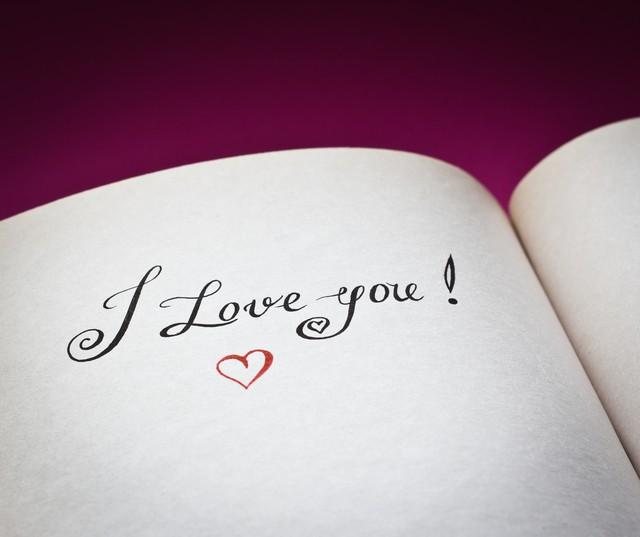 I Love you !